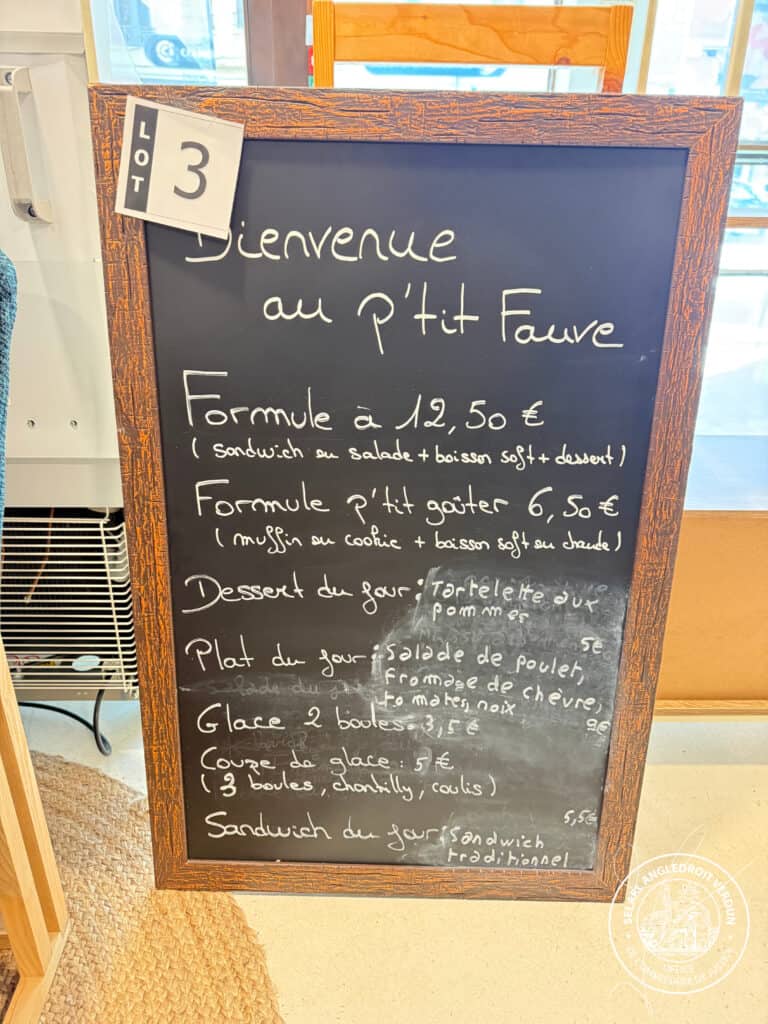 LOT 3
Bienvenue
au p'tit Fauve
Formule à 12,50 €
( sandwich ou salade + boisson soft + dessert )
Formule p'tit goûter 6,50 €
( muffin ou cookie + boisson soft ou chaude )
Dessert du jour : Tartelette aux
pommes
5€
Plat du jour : Salade de poulet,
fromage de chèvre,
tomates, noix
9€
Glace 2 boules : 3,5 €
Coupe de glace : 5 €
( 3 boules, chantilly, coulis )
5,5€
Sandwich du jour : Sandwich
traditionnel
SELARL ANGLEDROIT VERDUN
OFFICE